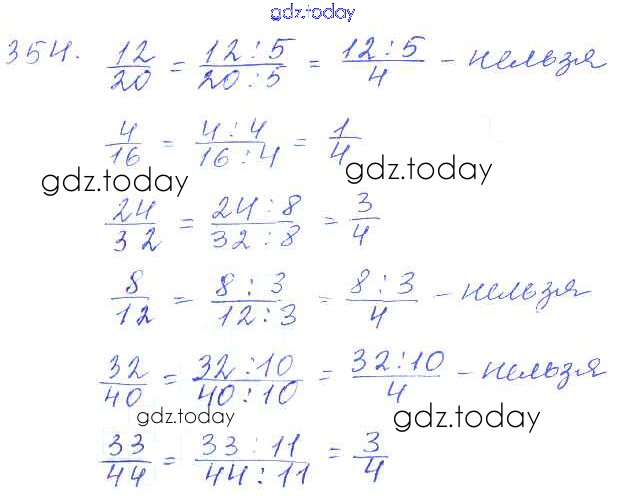 gdz.today
354. 12/20 = 12:5/20:5 = 12:5/4 - нельзя
4/16 = 4:4/16:4 = 1/4
gdz.today
gdz.today
24/32 = 24:8/32:8 = 3/4
8/12 = 8:3/12:3 = 8:3/4 - нельзя
32/40 = 32:10/40:10 = 32:10/4 - нельзя
gdz.today
gdz.today
33/44 = 33:11/44:11 = 3/4